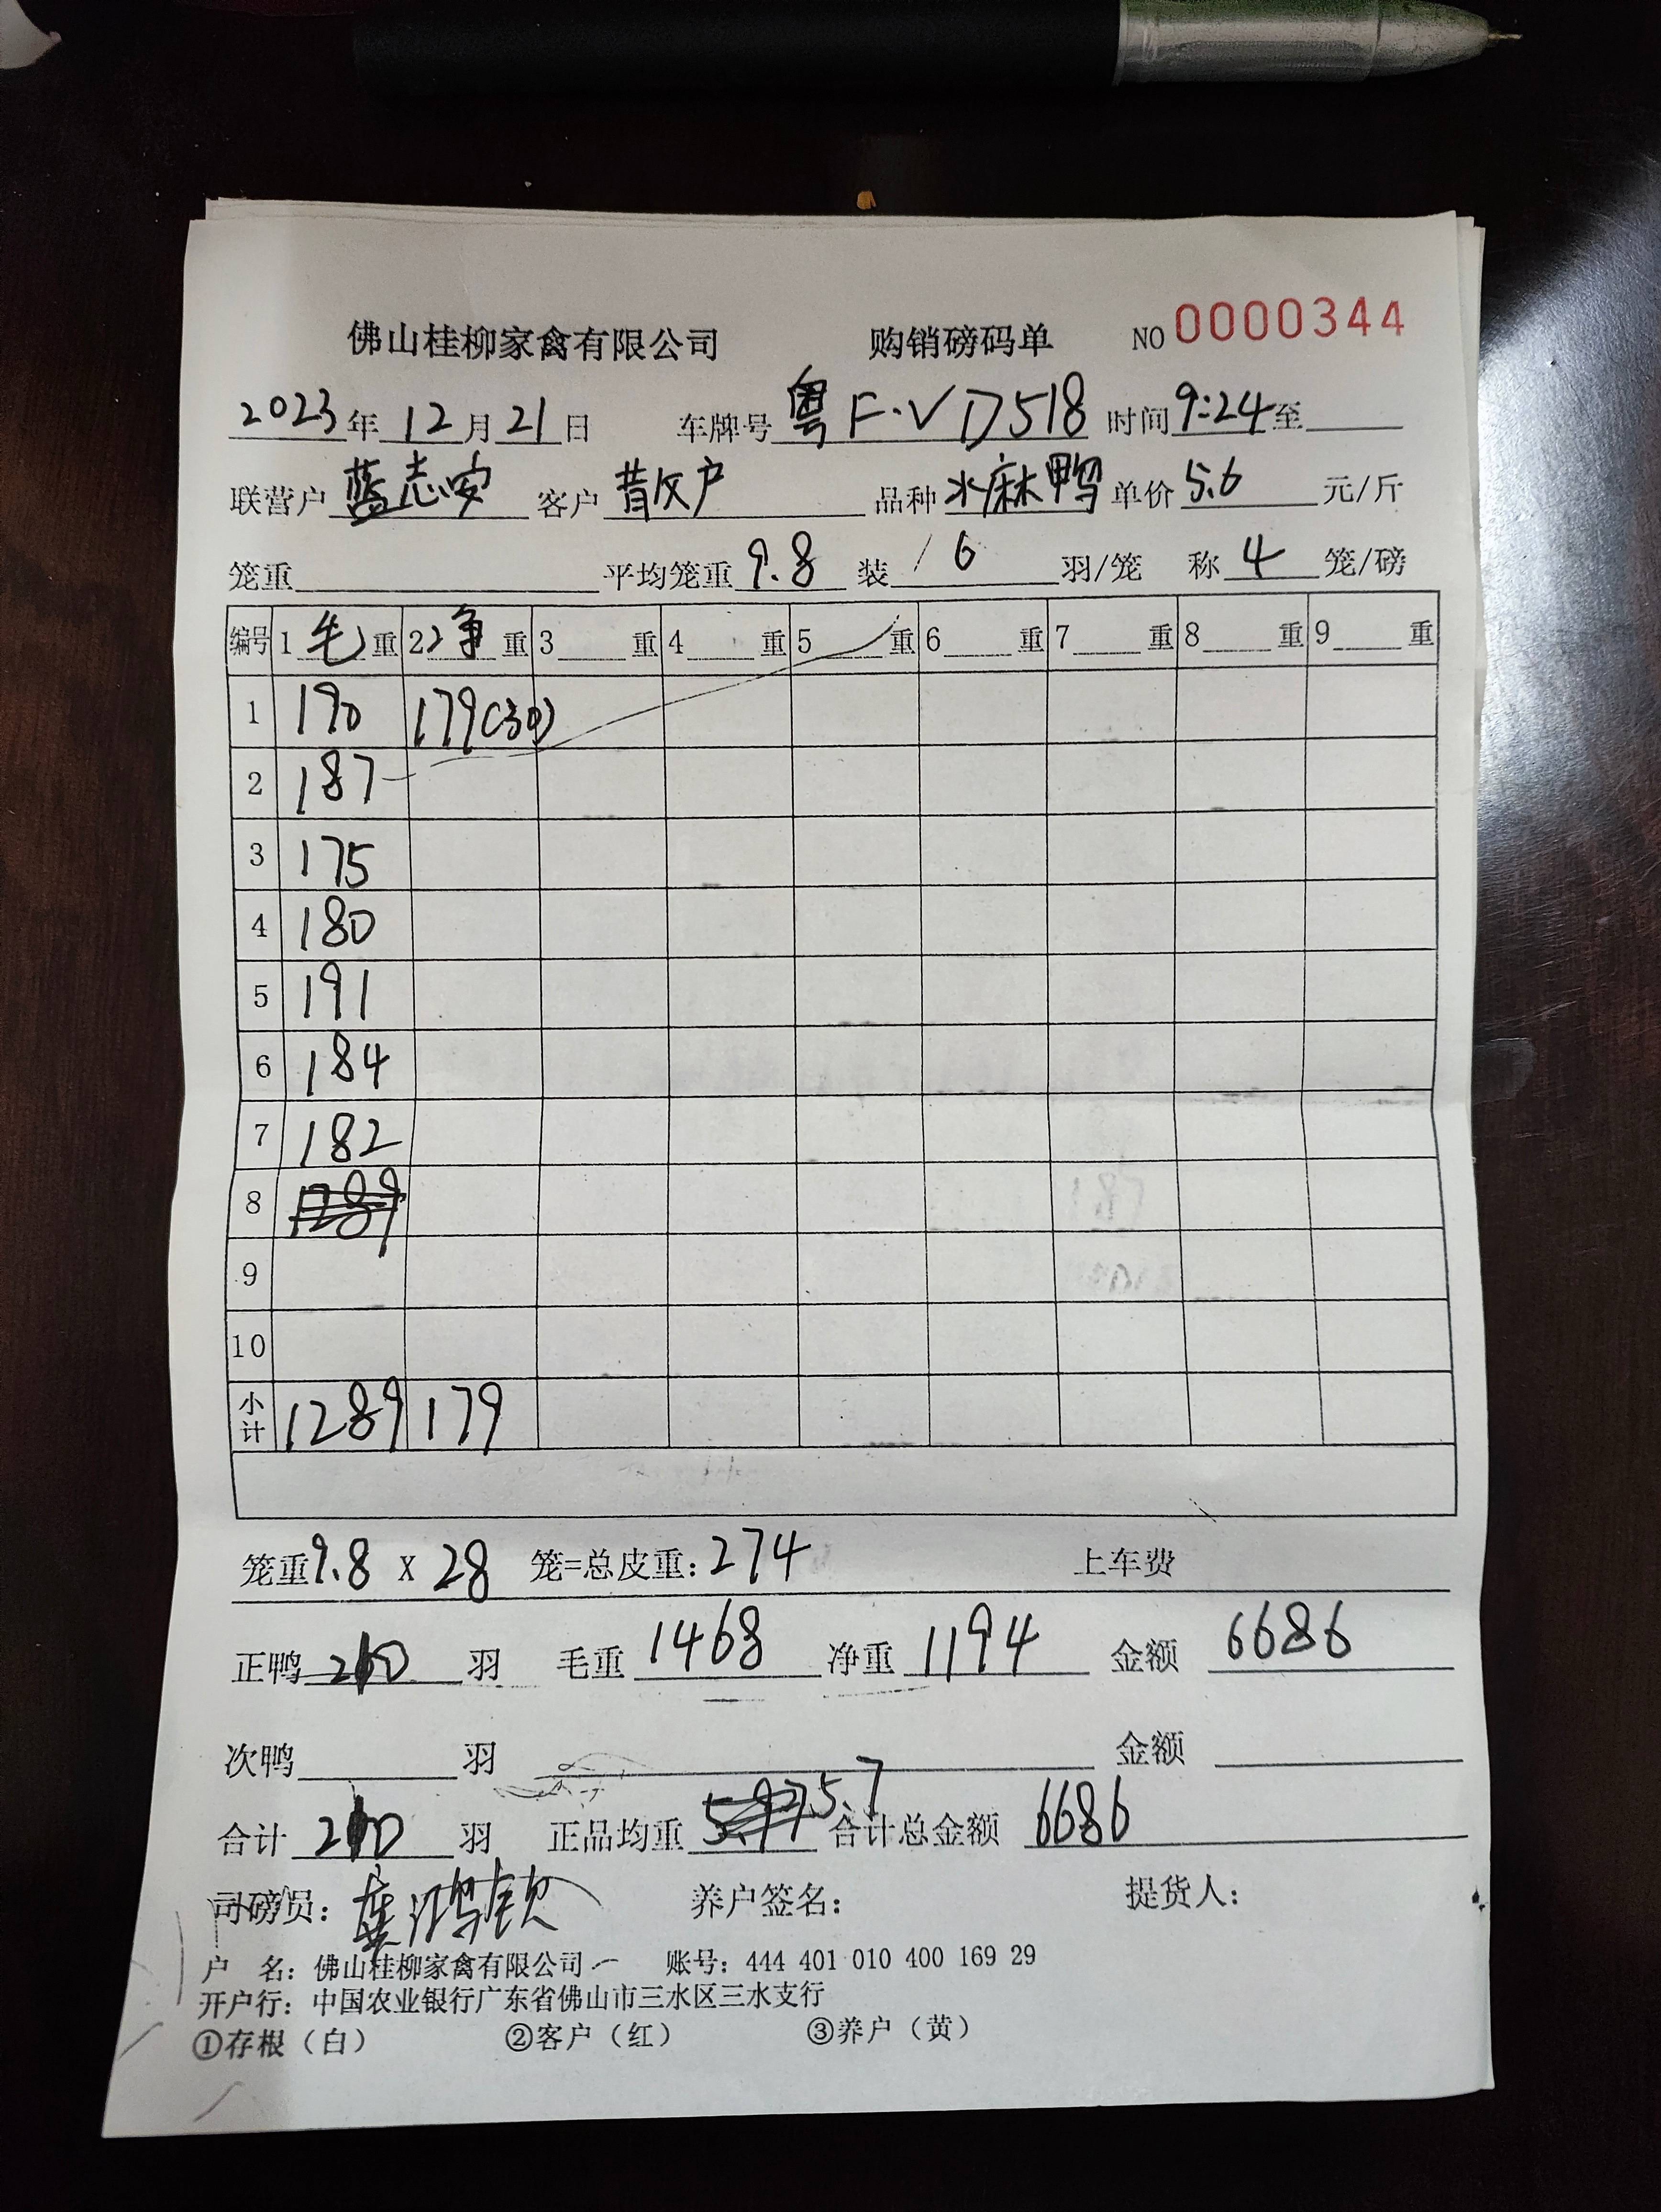 佛山桂柳家禽有限公司 购销磅码单 NO 0000344
2023年12月21日 车牌号 粤F·VD518 时间 9:24 至
联营户 蓝志安 客户 散户 品种 水麻鸭 单价 5.6 元/斤
笼重 平均笼重 9.8 装 6 羽/笼 称 4 笼/磅
编号 1 毛 重 2 净 重 3 重 4 重 5 重 6 重 7 重 8 重 9 重
1 190 179(30)
2 187
3 175
4 180
5 191
6 184
7 182
8 1289
9
10
小计 1289 179
笼重 9.8 X 28 笼=总皮重: 274 上车费
正鸭 210 羽 毛重 1468 净重 1194 金额 6686
次鸭 羽 金额
合计 210 羽 正品均重 5.7 合计总金额 6686
司磅员: 养户签名: 提货人:
户 名: 佛山桂柳家禽有限公司 账号: 444 401 010 400 169 29
开户行: 中国农业银行广东省佛山市三水区三水支行
①存根（白） ②客户（红） ③养户（黄）